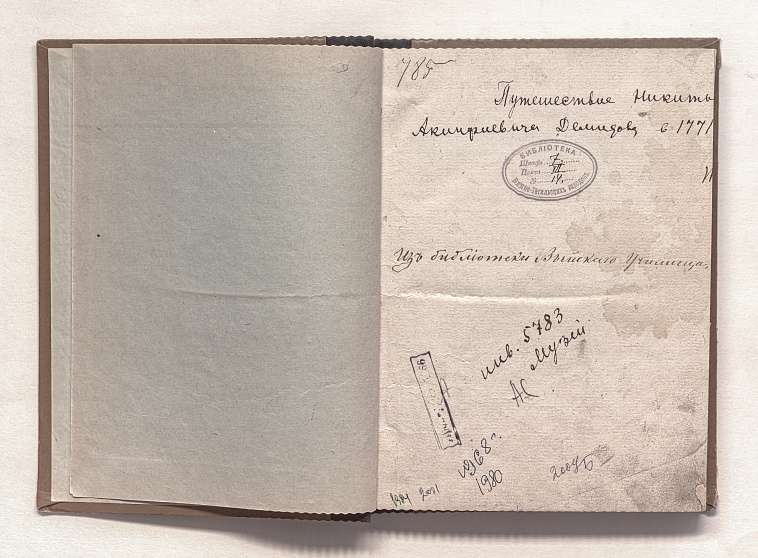 785
Путешествие Никиты
Акинфиевича Демидова с 1771
И
БИБЛІОТЕКА
Шкафъ 7.
Полка III
№ 14.
Нижне-Тагильскихъ заводовъ
Изъ библіотеки Выйскаго Училища.
инв. 5783
Музій
АС
1968г.
1980
1984 2011
2004 Б